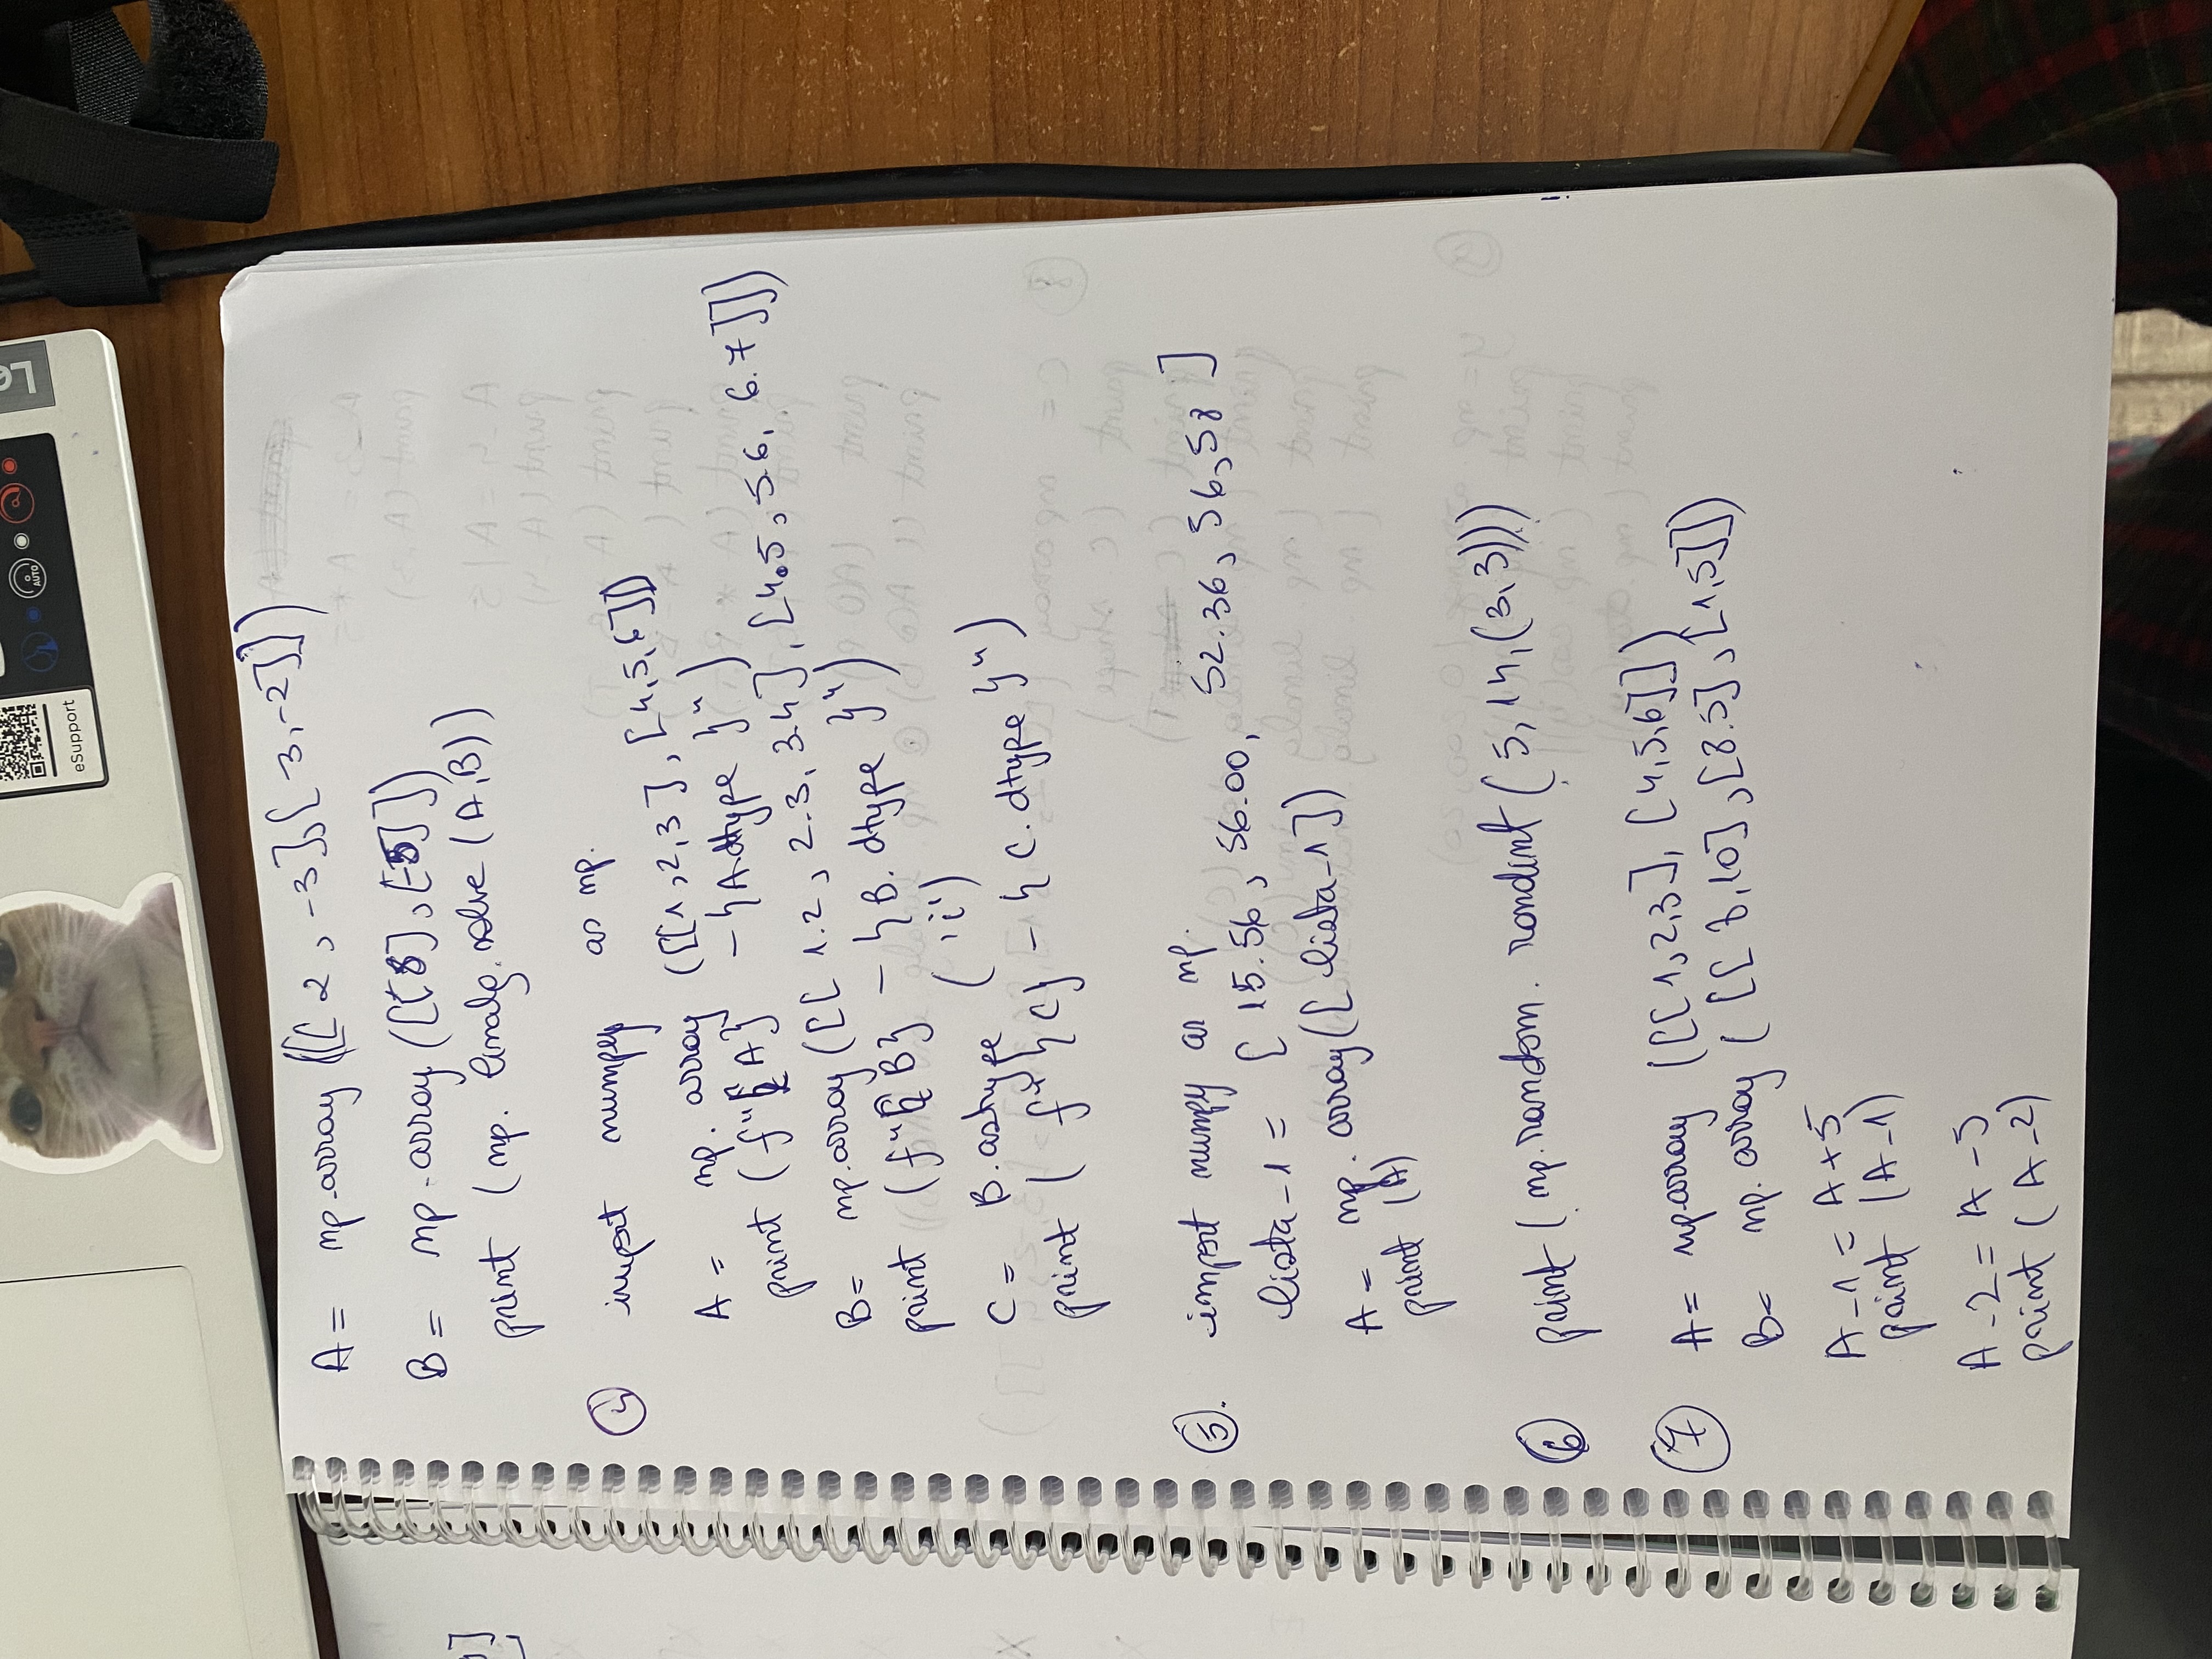 eSupport
AUTO
Le
A = np.array([[2, -3],[3,-2]])
B = np.array([[8],[-5]])
print (np. linalg.solve (A,B))
4 import numpy as np.
A = np. array ([[1,2,3], [4,5,6]])
print (f"{A} - {A.dtype}")
B= np.array([[1.2, 2.3, 3.4], [4.5, 5.6, 6.7]])
print (f"{B} - {B. dtype}")
C = B.astype ('i')
print ( f"{C} - {C. dtype}")
5. import numpy as np.
lista_1 = [15.56, 56.00, 52.36, 56,58]
A = np. array([lista_1])
print (A)
6 print ( np.random. randint (5,14,(3,3)))
7 A= np.array ([[1,2,3], [4,5,6]])
B= np. array ( [[8,10],[8.5],[1,5]])
A_1 = A+5
print (A_1)
A_2 = A-5
print (A_2)